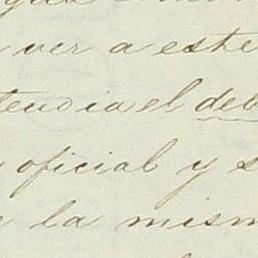 ver a este
tendia el deb
oficial y s
la mism